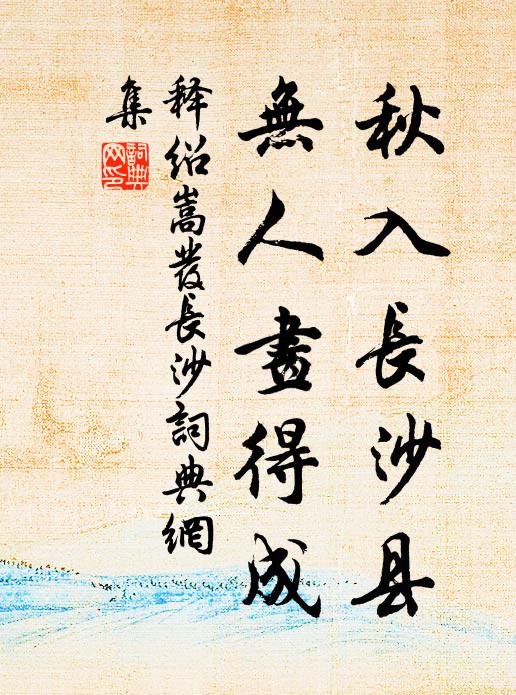 秋入長沙县
無人畫得成
释绍嵩發長沙詞典網
集
詞典網印